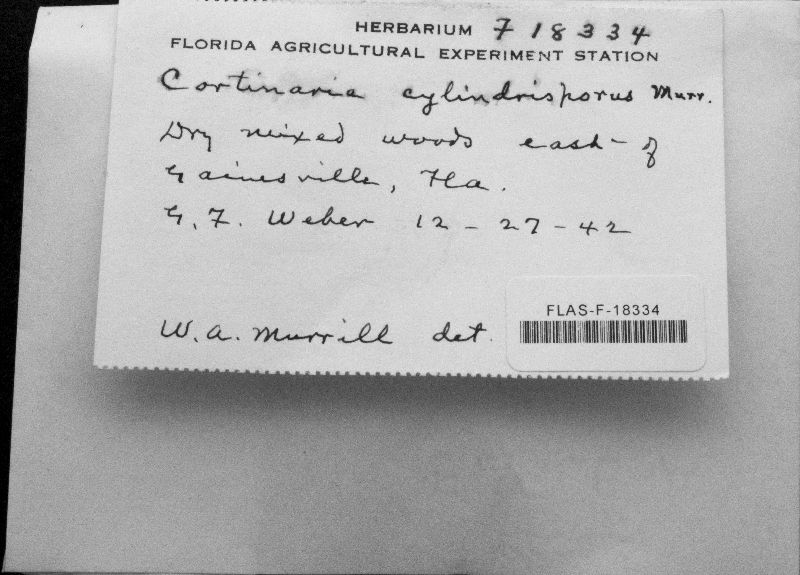 HERBARIUM F 18334
FLORIDA AGRICULTURAL EXPERIMENT STATION
Cortinaria cylindrisporus Murr.
Dry mixed woods east of
Gainesville, Fla.
G. F. Weber 12-27-42
W. A. Murrill det.
FLAS-F-18334